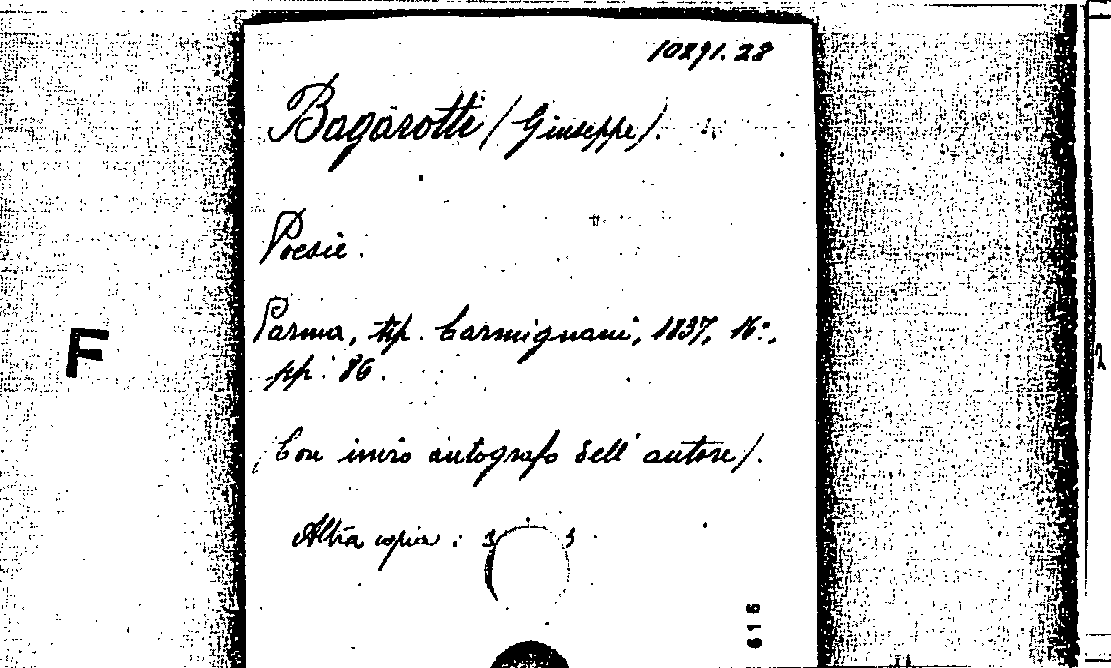 10291.28
Bagarotti (Giuseppe).
Poesie.
F
Parma, tip. Carmignani, 1837, 16º,
pp. 86.
(Con invio autografo dell'autore).
Altra copia:
615